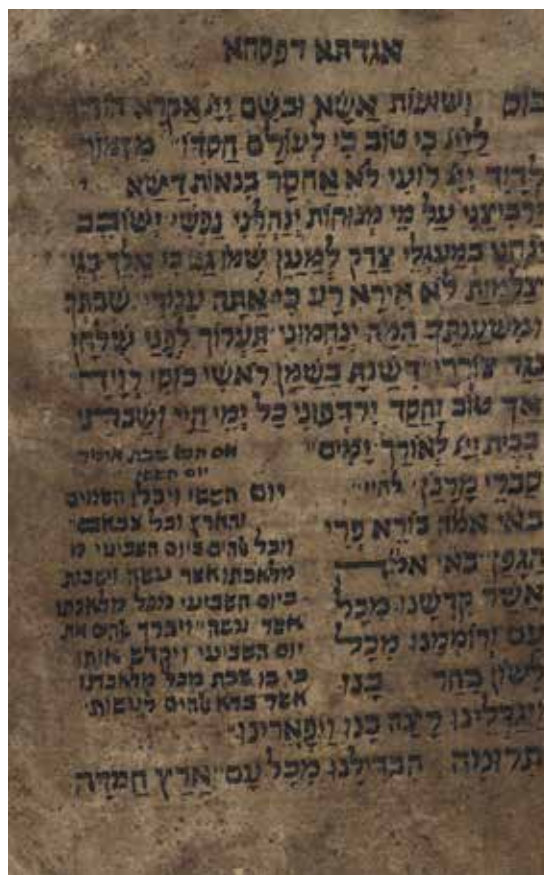 אגדתא דפסחא
כוס ישועות אשא ובשם ייי אקרא הודו
לייי כי טוב כי לעולם חסדו מזמור
לדוד ייי רועי לא אחסר בנאות דשא
ירביצני על מי מנוחות ינהלני נפשי ישובב
ינחני במעגלי צדק למען שמו גם כי אלך בגי
צלמות לא אירא רע כי אתה עמדי שבטך
ומשענתך המה ינחמוני תערוך לפני שולחן
נגד צוררי דשנת בשמן ראשי כוסי רוויה
אך טוב וחסד ירדפוני כל ימי חיי ושבתי
בבית ייי לאורך ימים
סברי מרנן לחיי
באי אמה בורא פרי
הגפן באי אמה
אשר קדשנו מכל
עם ורוממנו מכל
לשון בחר בנו
ויגדלינו רצה בנו ויפארינו
תרומה הבדילנו מכל עם ארץ חמדה
אם חל שבת אומר
יום הששי
יום הששי ויכלו השמים
והארץ וכל צבאם
ויכל אלהים ביום השביעי מ
מלאכתו אשר עשה וישבות
ביום השביעי מכל מלאכתו
אשר עשה ויברך אלהים את
יום השביעי ויקדש אותו
כי בו שבת מכל מלאכתו
אשר ברא אלהים לעשות